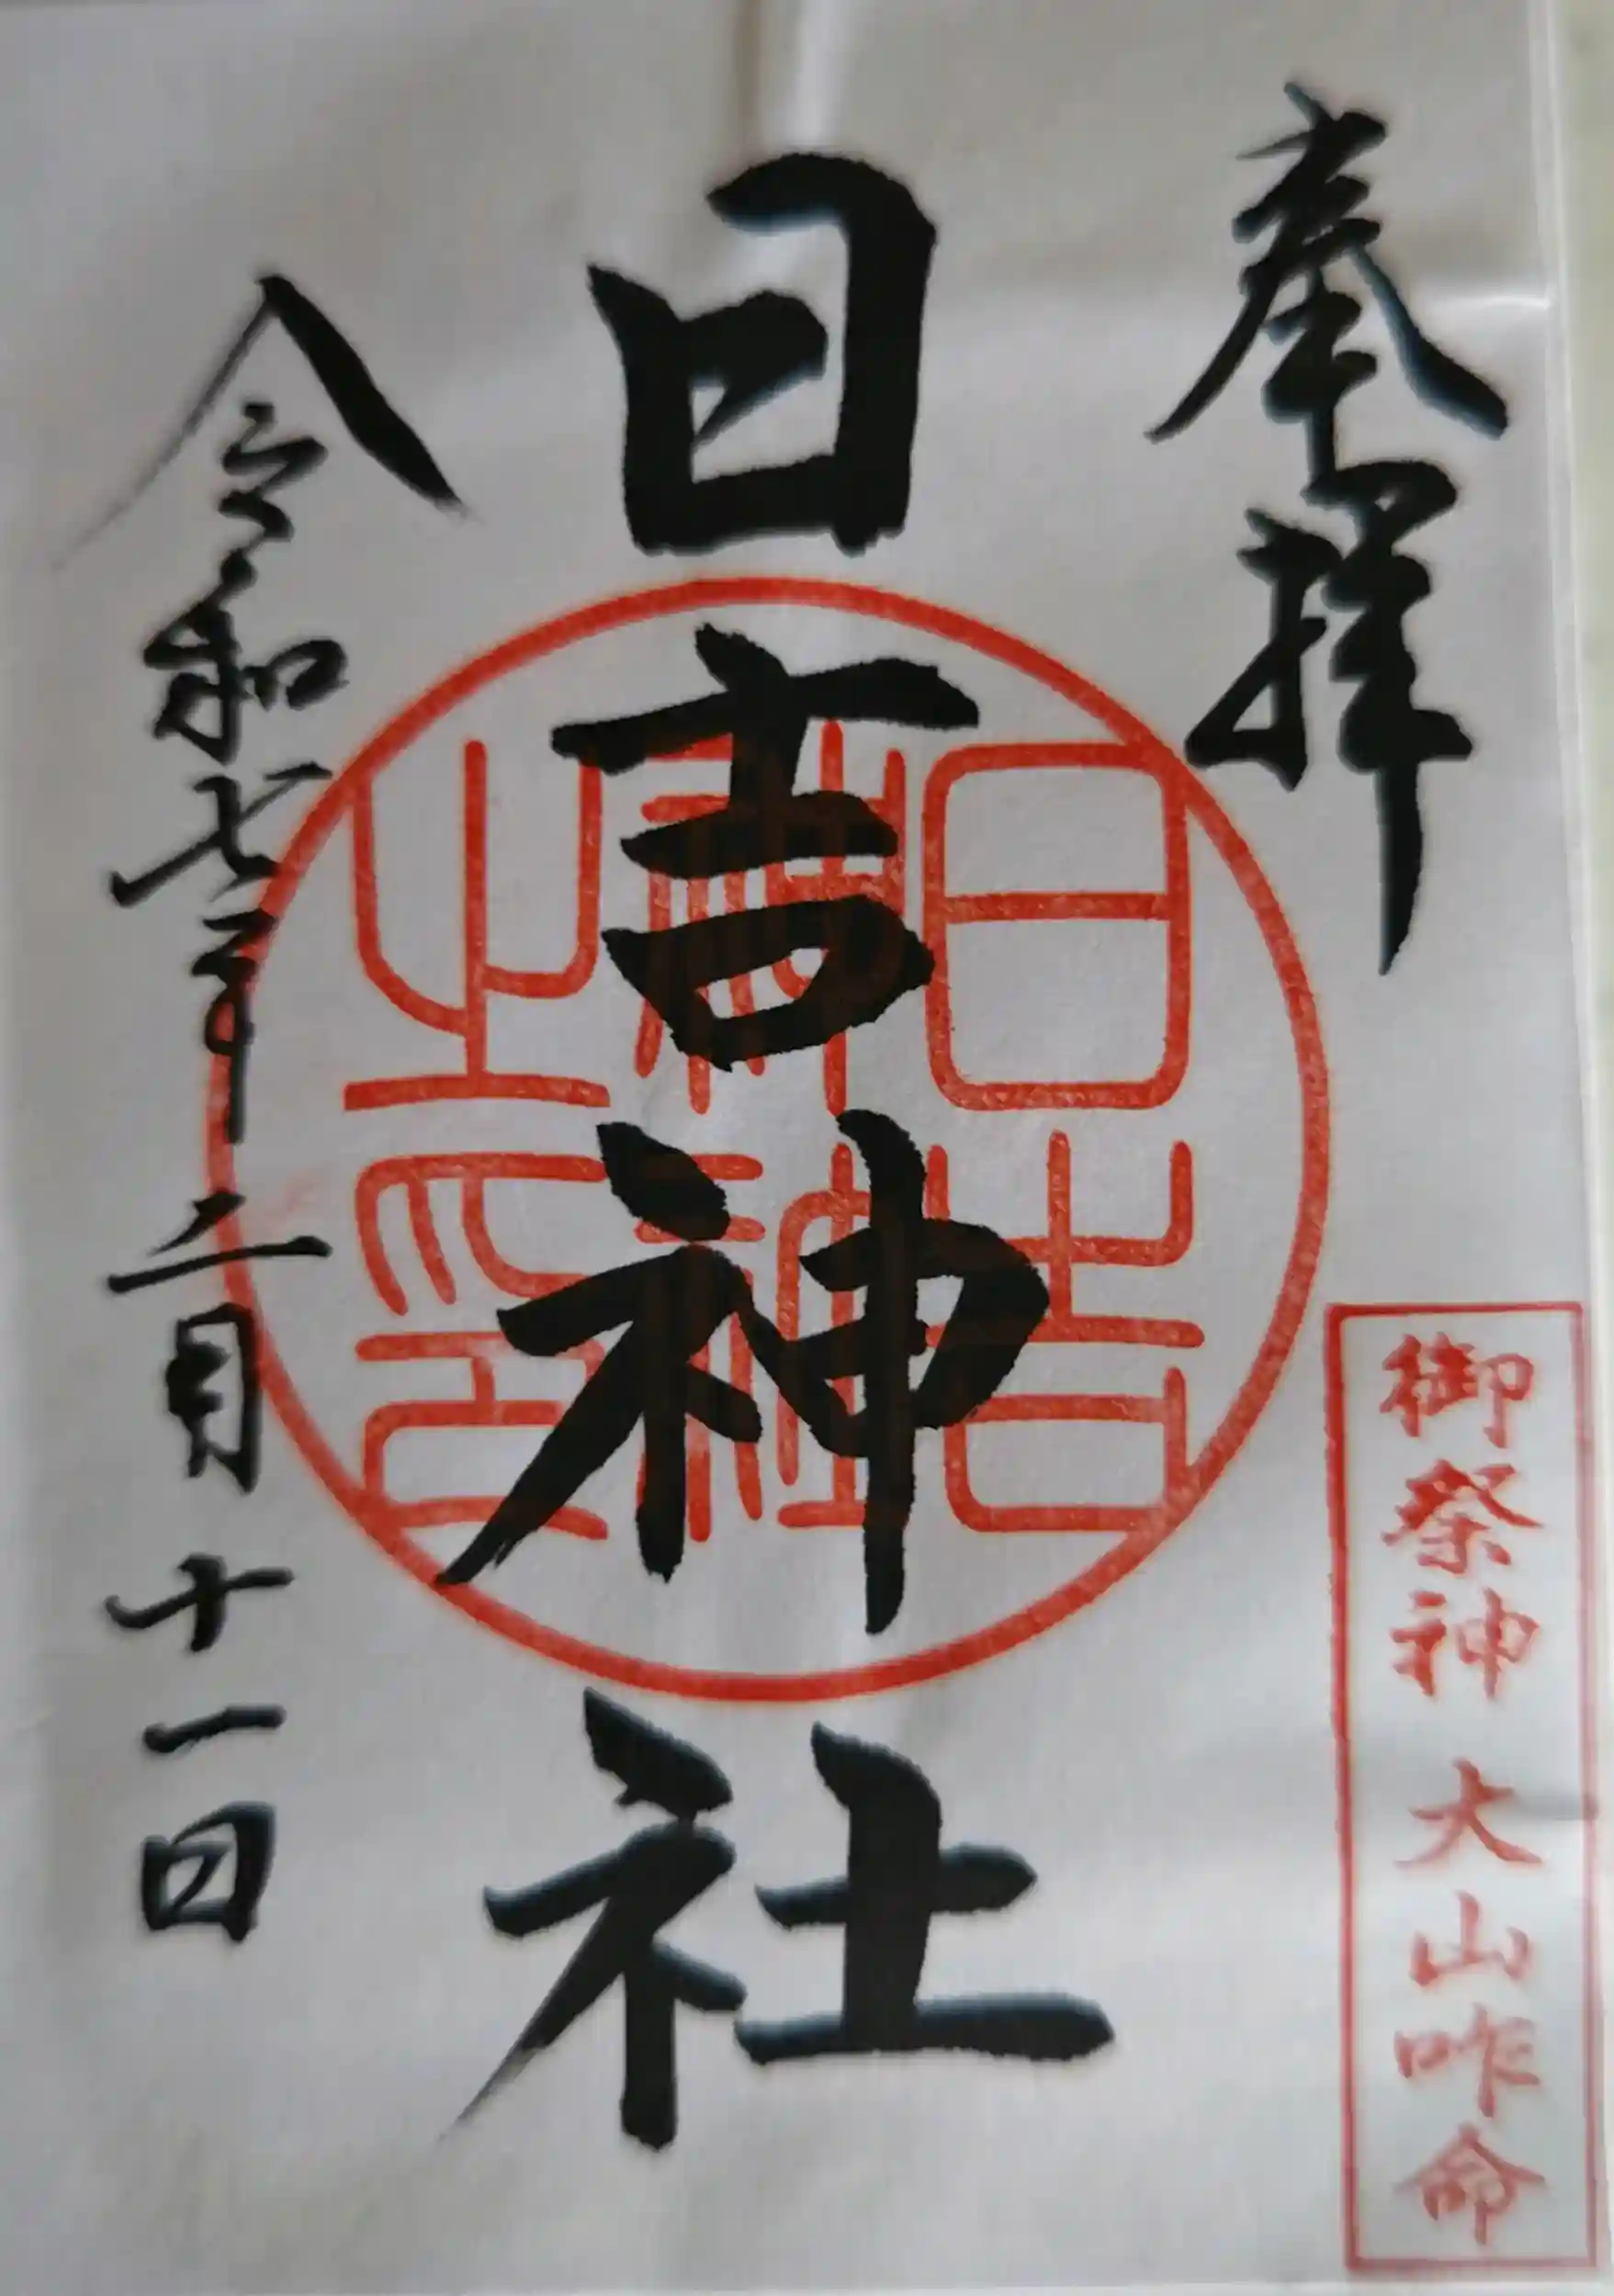 奉拝
御祭神 大山咋命
日吉神社
日吉
神社
之印
令和七年二月十一日